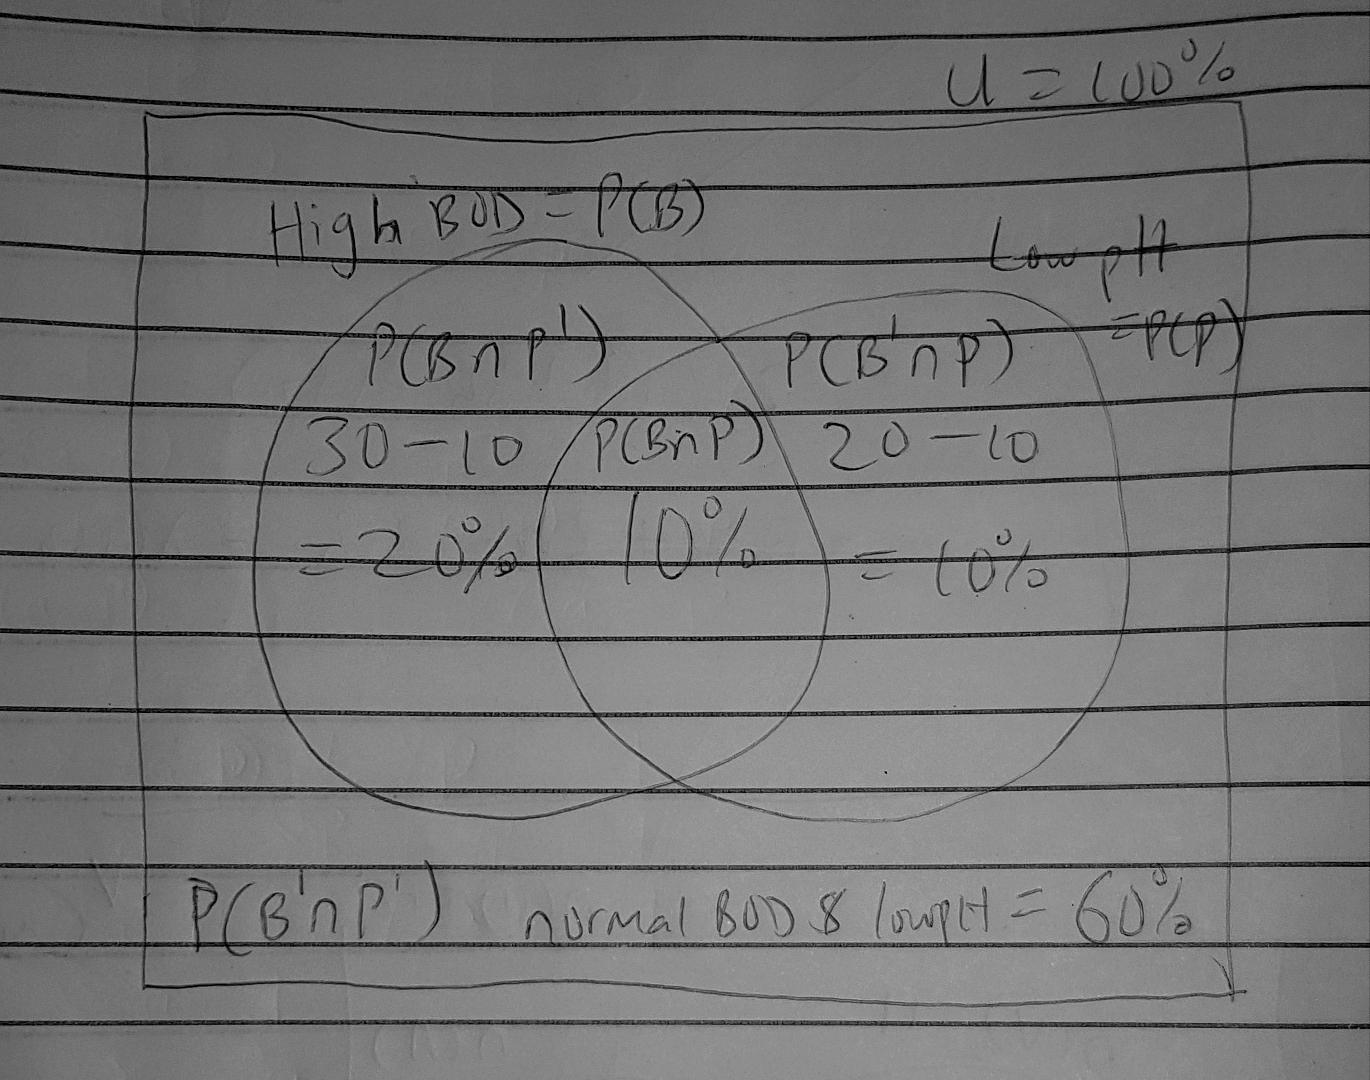 U = 100%
High BOD = P(B)
Low pH
= P(P)
P(B∩P')
P(B'∩P)
30-10
P(B∩P)
20-10
= 20%
10%
= 10%
P(B'∩P') normal BOD & low pH = 60%